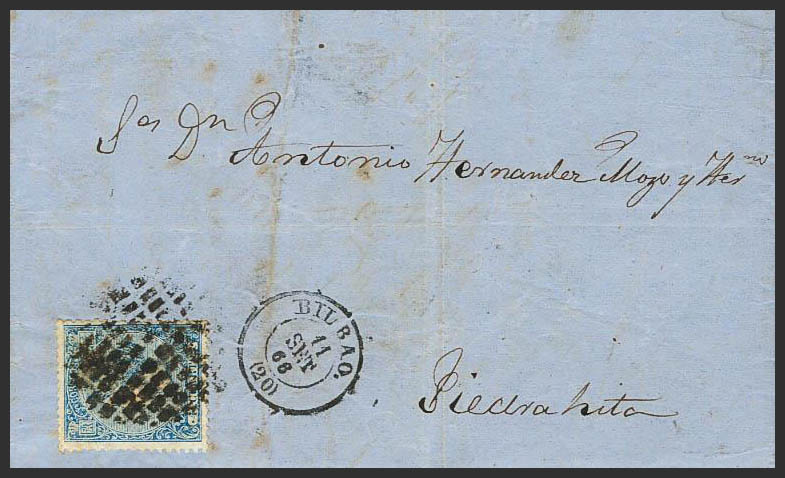 Sres Dn
Antonio Hernandez Mozo y Herno
BILBAO.
11
SET
66
(20)
Piedrahita